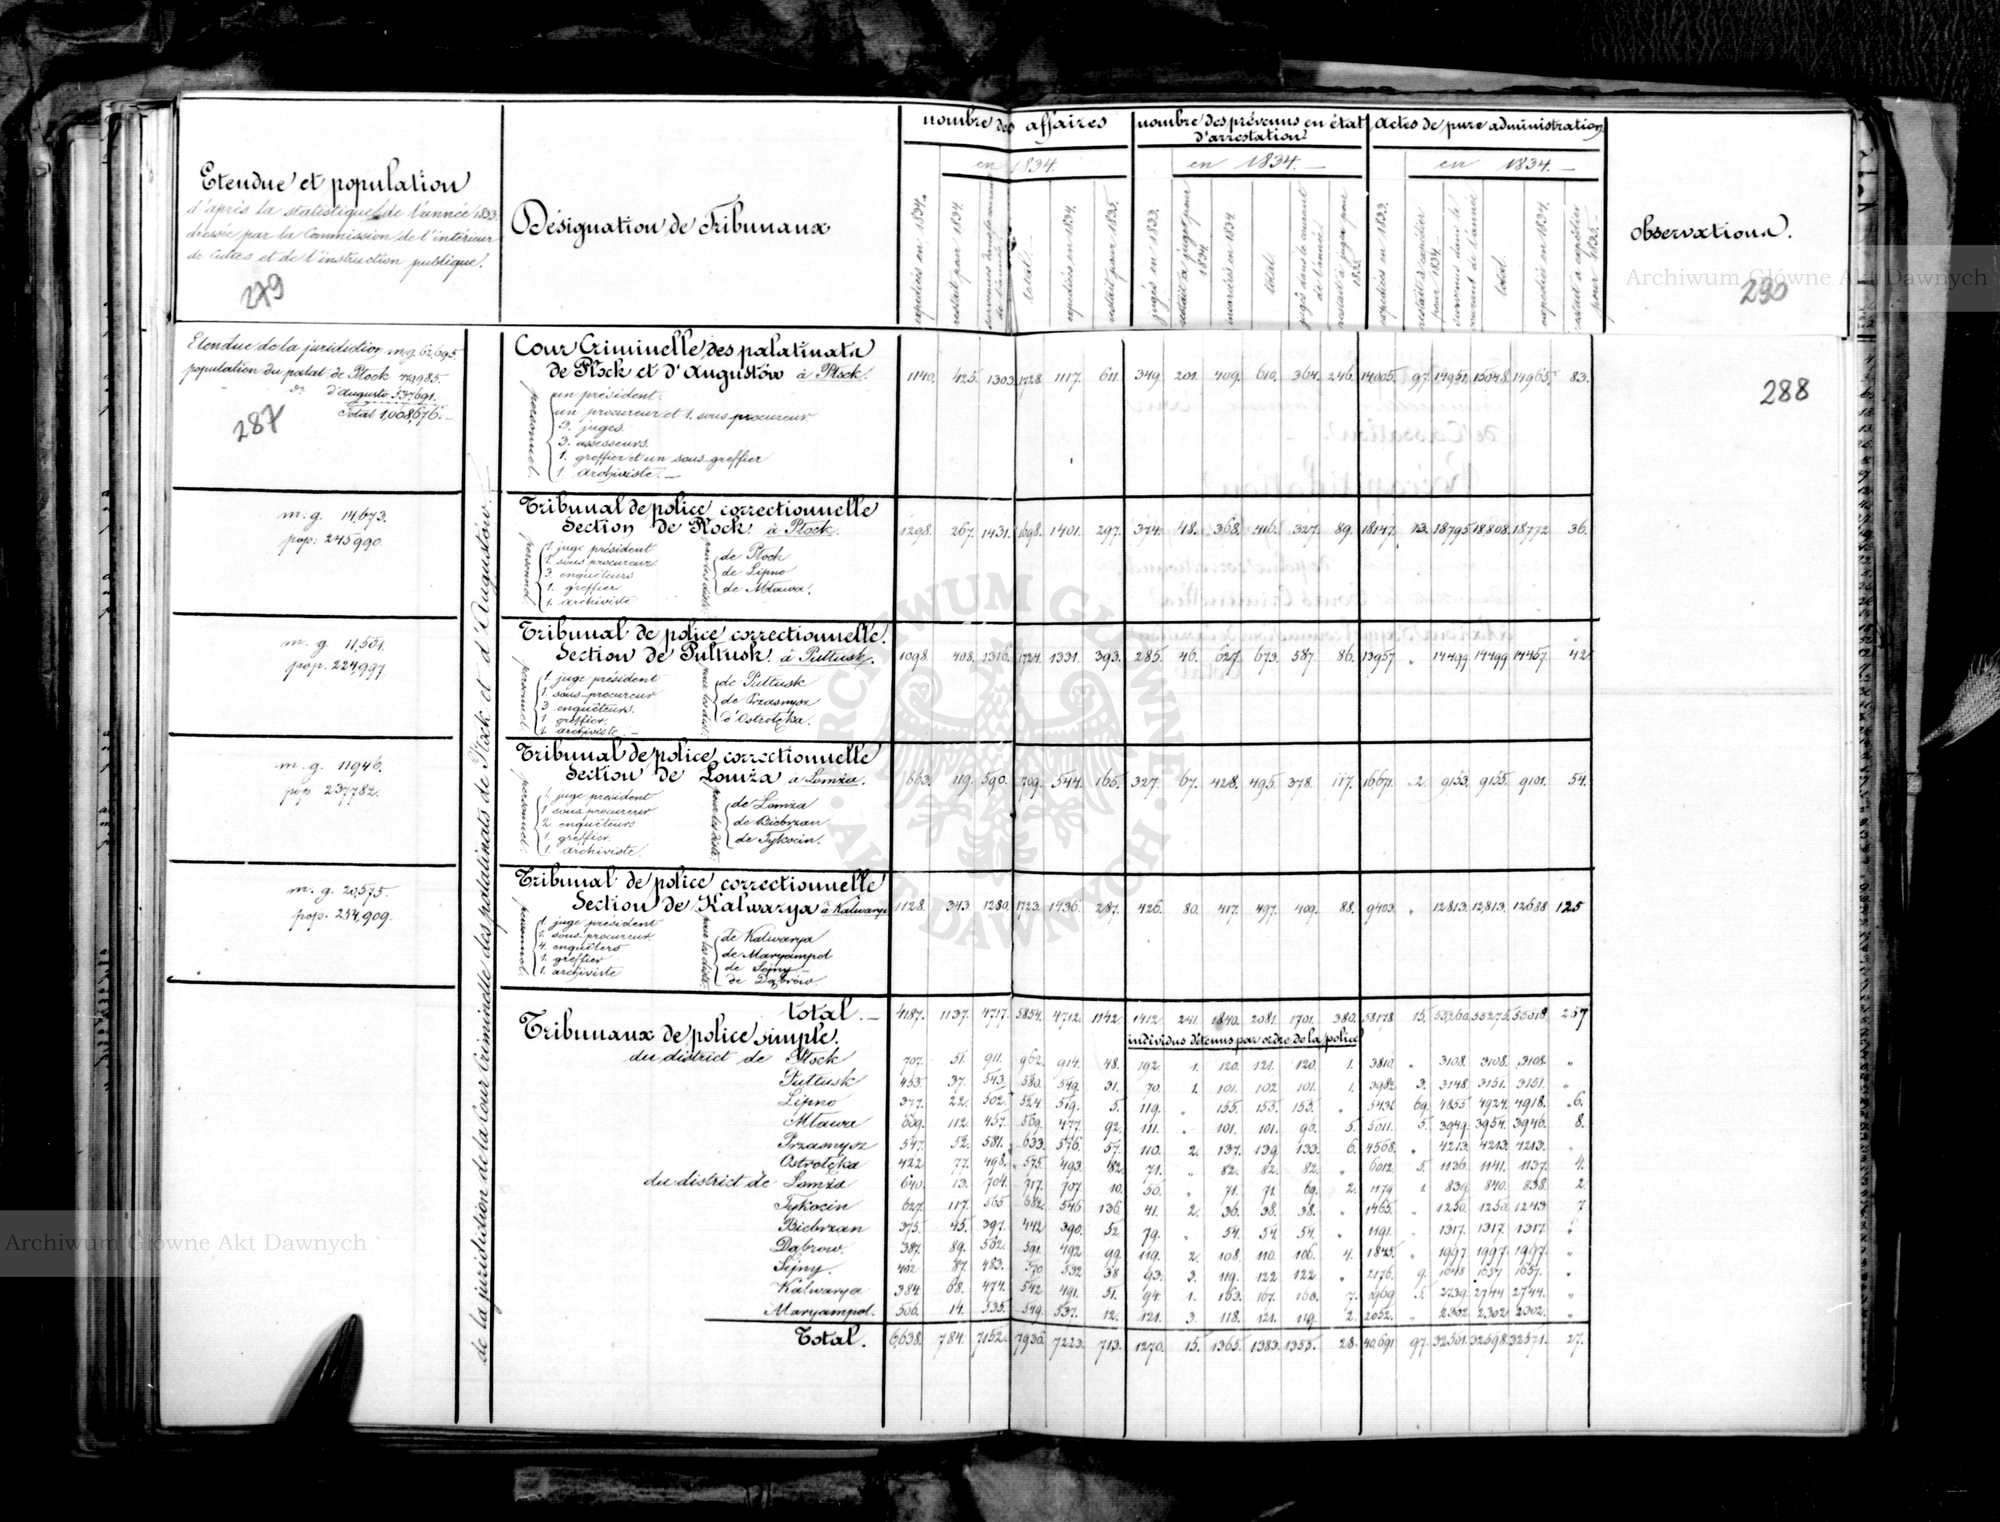 Etendue et population
d'après la statistique de l'année 1833
dressée par la Commission de l'intérieur
de Cultes et de l'instruction publique.
279
Désignation de Tribunaux
nombre des affaires
en 1834.
expédiées en 1834.
restait pour 1834.
survenues dans le courant de l'année
total.
expédiées en 1834.
restait pour 1835.
nombre des prévenus en état
d'arrestation
en 1834.
jugés en 1833.
restait à juger pour 1834.
total.
jugés dans le courant de l'année
restait à juger pour 1835.
actes de pure administration
en 1834.
expédiés en 1833.
restait à expédier pour 1834.
survenus dans le courant de l'année
total.
expédiés en 1834.
restait à expédier pour 1835.
Observations.
290
288
Etendue de la juridiction m.g. 62,695.
population du palat de Plock
d'Augusto 537691.
Total 1,008,676.
287
de la juridiction de la Cour Criminelle des palatinats de Plock et d'Augustów.
Cour Criminelle des palatinats
de Plock et d'Augustów à Plock. 1140. 425. 1303. 1728. 1117. 611. 349. 201. 409. 610. 364. 246. 14005. 97. 14951. 15048. 14965. 83.
personnel.
un président.
un procureur et 1. sous procureur
3. juges.
3. assesseurs.
1. greffier et un sous-greffier
1. archiviste.
m.g. 14,673.
pop: 245990.
Tribunal de police correctionnelle
Section de Plock. à Plock. 1298. 267. 1431. 1698. 1401. 297. 374. 48. 368. 416. 327. 89. 18147. 13. 18795. 18808. 18772 36.
personnel.
1. juge président
1. sous procureur
3. enquêteurs
1. greffier
1. archiviste
pour les distr:
de Plock
de Lipno
de Mława.
m.g. 11,501.
pop. 224997.
Tribunal de police correctionnelle.
Section de Pultusk. à Pultusk. 1098. 408. 1316. 1724. 1331. 393. 285. 46. 627. 673. 587. 86. 13957 " 14499 14499 14457. 42
personnel
1. juge président
1. sous-procureur
3 enquêteurs.
1. greffier.
1. archiviste.
pour les distr:
de Pultusk
de Przasnysz
d'Ostrołęka.
m.g. 11946.
pop 237782.
Tribunal de police correctionnelle
Section de Lomża à Lomża. 663. 119. 590. 709. 544. 165. 327. 67. 428. 495. 378. 117. 16671. 2. 9153. 9155. 9101. 54.
personnel.
1. juge président
1 sous procureur
2. enquêteurs.
1. greffier.
1. archiviste.
pour les distr:
de Lomża
de Biebrzan
de Tykocin.
m.g. 20,575.
pop. 254,909.
Tribunal de police correctionnelle
Section de Kalwarya à Kalwarya 1128. 343. 1280. 1723. 1436. 287. 426. 80. 417. 497. 409. 88. 9403. " 12813. 12,813. 12688 125
personnel.
1. juge président
1. sous-procureur.
4. enquêters
1. greffier
1. archiviste
pour les distr:
de Kalwarya
de Maryampol
de Sejny
de Dąbrów.
total. 4187. 1137. 4717. 5854. 4712. 1142. 1412. 241. 1840. 2081. 1701. 380. 58178. 15. 55,260. 55275. 55018. 257
Tribunaux de police simple.
individus détenus par ordre de la police
du district de Plock 707. 51. 911. 962. 914. 48. 192. 1. 120. 121. 120. 1. 3810. " 3108. 3108. 3108. "
Pultusk 453. 37. 543. 580. 549. 31. 70. 1. 101. 102 101. 1. 3982 3. 3148. 3151. 3151. "
Lipno 377. 22. 502. 524. 519. 5. 119. " 155. 155. 155. " 5431 69. 4855 4924. 4918. 6.
Mława 609. 112. 457. 569. 477. 92. 111. " 101. 101. 96. 5. 5011. 5. 3949. 3954. 3946. 8.
Przasnysz 547. 52. 581. 633. 576. 57. 110. 2. 137. 139. 133. 6. 4568. " 4213. 4213. 4213. "
Ostrołęka 422. 77. 498. 575. 493. 82. 71. " 82. 82. 82. " 6012. 5. 1136. 1141. 1137. 4.
du district de Lomża 640. 13. 704. 717. 707 10. 50. " 71. 71 69. 2. 1179 1. 839. 840. 838. 2.
Tykocin 627. 117. 565. 682. 546 136. 41. 2. 36. 38. 38. " 1465. " 1250. 1250. 1243 7
Biebrzan 375. 45. 397. 442 390. 52. 79. " 54. 54 54. " 1191. " 1317. 1317. 1317. "
Dąbrow. 387. 89. 502. 591. 492 99. 119. 2. 108. 110. 106. 4. 1845. " 1997. 1997. 1997. "
Sejny. 402 87. 483. 570 532 38 93. 3. 119. 122 122. " 2176. 9. 1648 1657 1657. "
Kalwarya 384 68. 474. 542 491. 51. 94 1. 163. 167. 160. 7. 2969 5. 2739. 2744 2744. "
Maryampol. 506. 14. 535. 549. 537. 12. 121. 3. 118. 121. 119. 2. 2052. " 2302 2302 2302. "
Total. 6,638. 784. 7152. 7936. 7223. 713. 1270. 15. 1365. 1383. 1355. 28. 40,691 97. 32501. 32598. 32571. 27.
Archiwum Główne Akt Dawnych
Archiwum Główne Akt Dawnych
ARCHIWUM GŁÓWNE AKT DAWNYCH